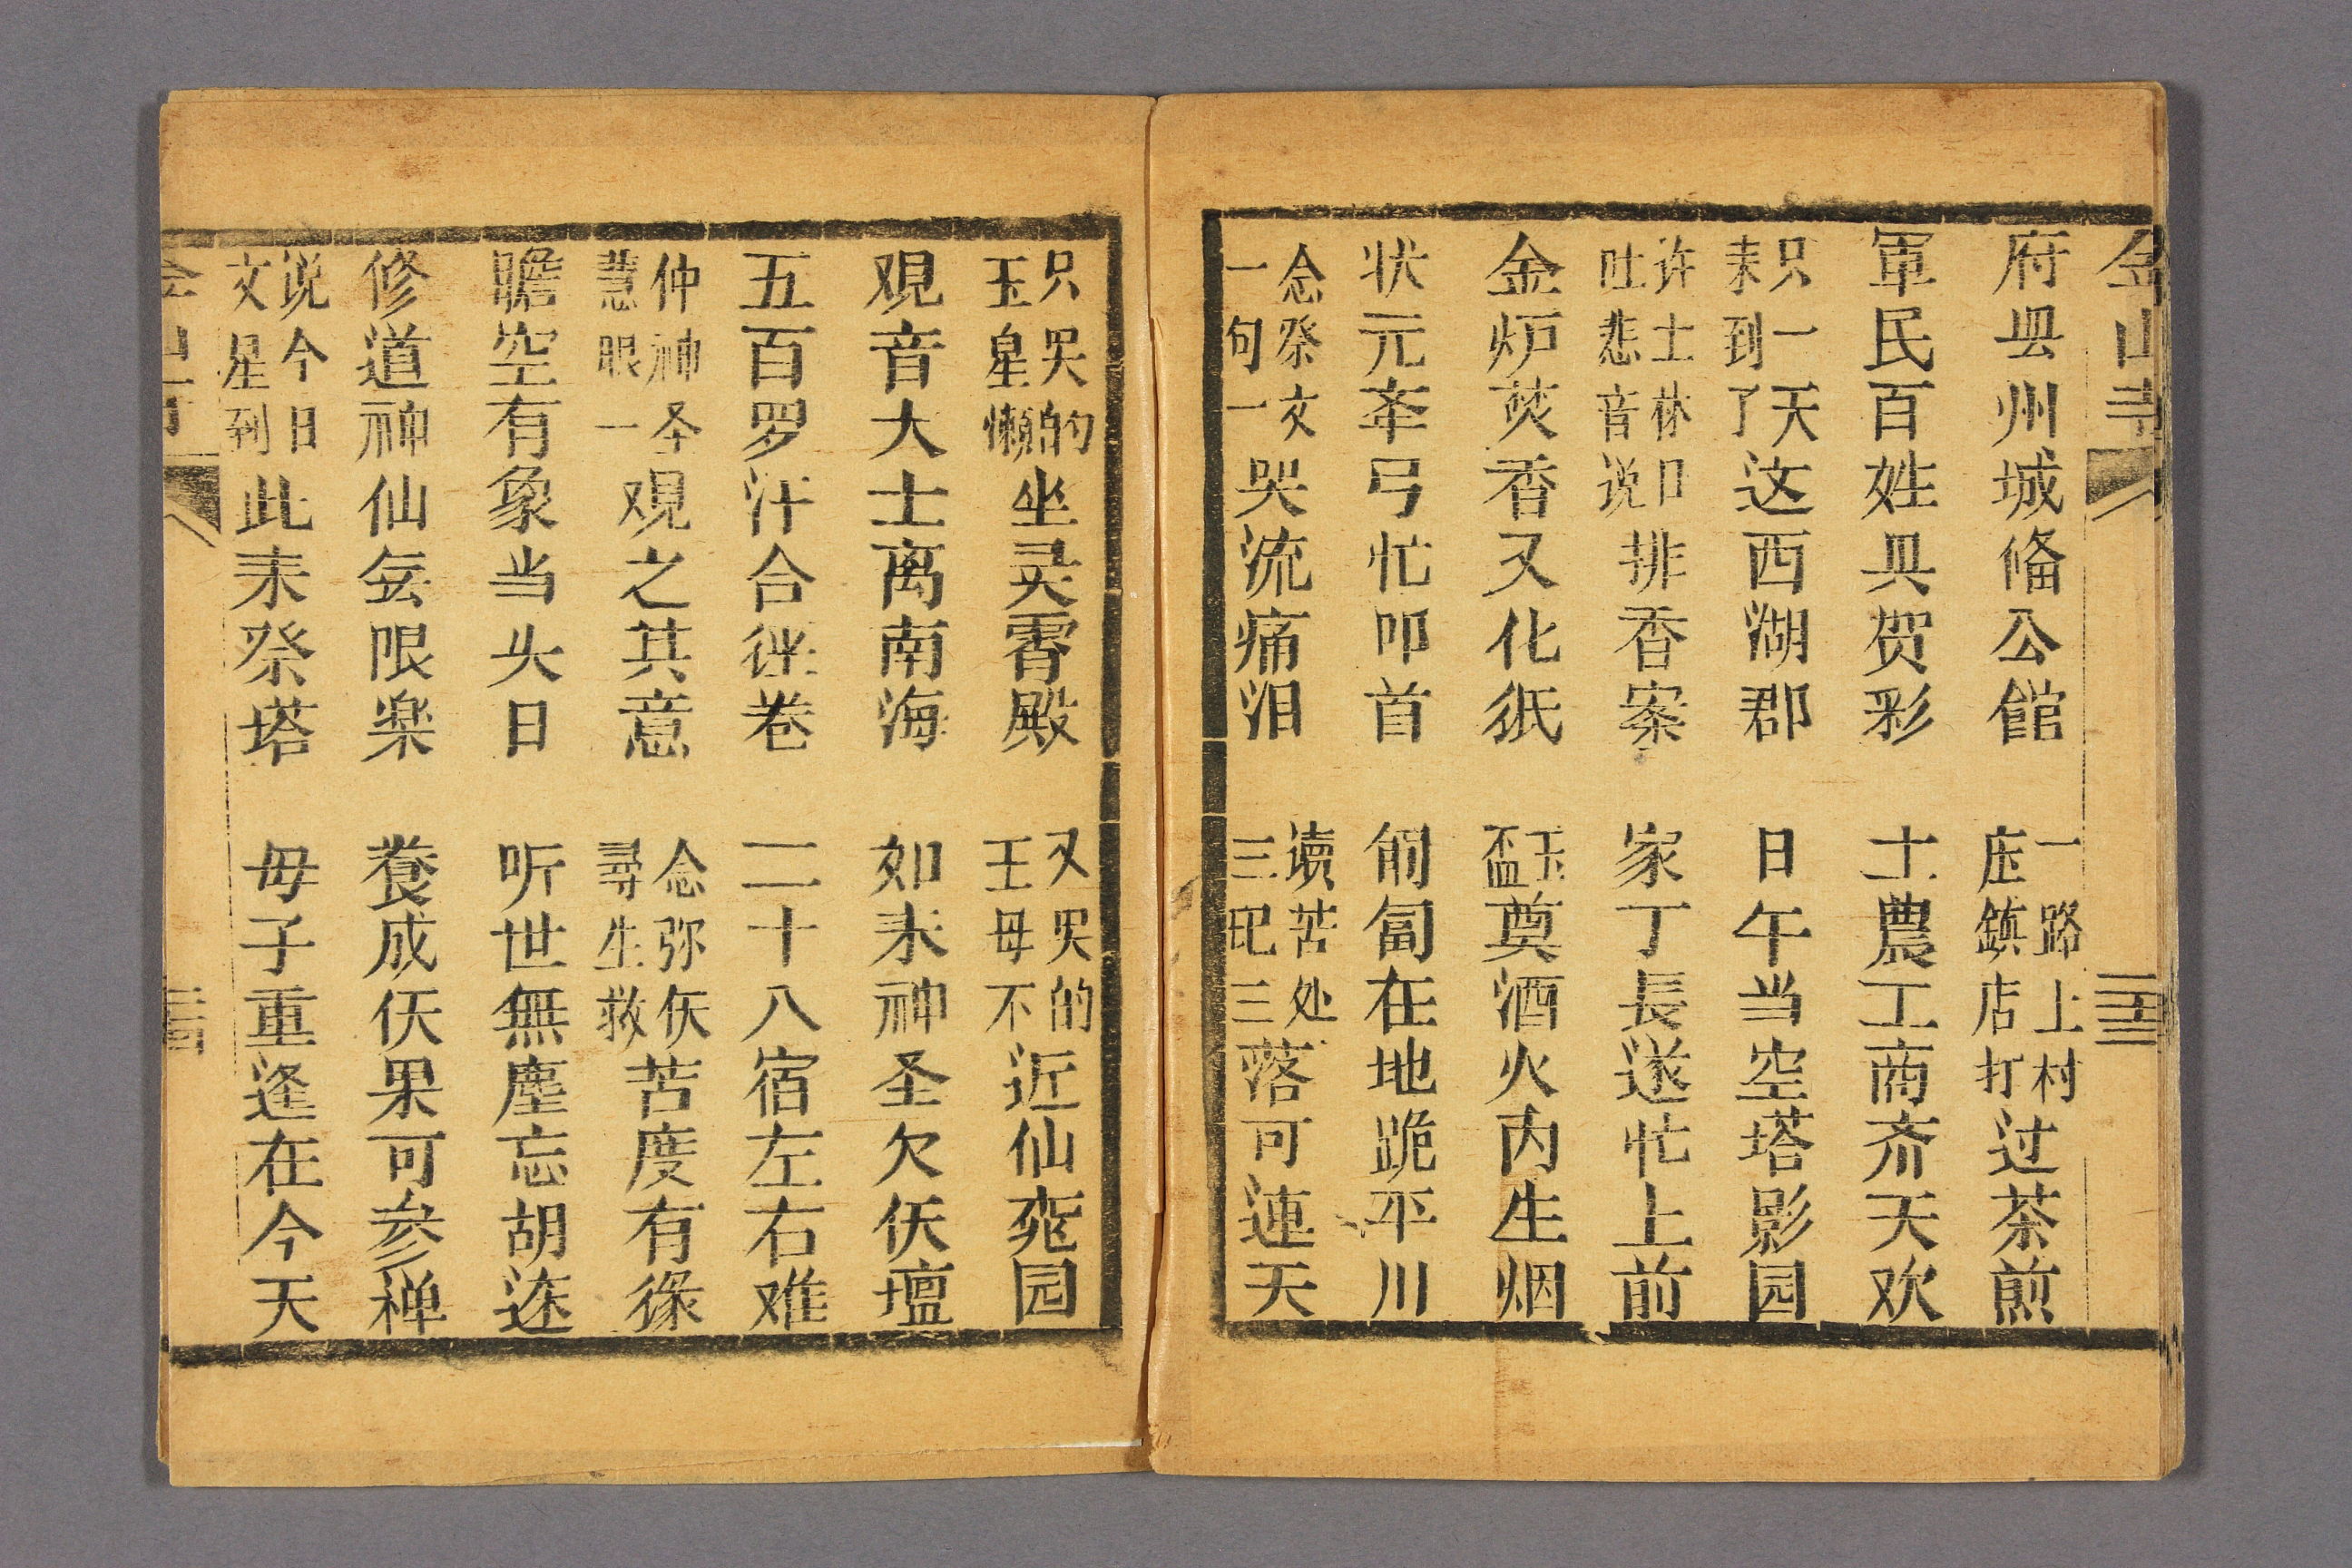 金山寺 三十三
府县州城俻公館 一路上村庄鎮店打过茶煎
軍民百姓具贺彩 士農工商齐天欢
只一天耒到了这西湖郡 日午当空塔影园
许士林口吐悲音说排香案 家丁長遂忙上前
金炉焚香又化紙 玉盃奠酒火内生烟
状元牽弓忙叩首 匍匐在地跪平川
念祭文一句一哭流痛泪 读苦处三咫三落可連天
只哭的玉皇懒坐灵霄殿 又哭的王母不近仙窕园
观音大士离南海 如耒神圣欠仸壇
五百罗汗合徃巻 二十八宿左右难
仲神圣慧眼一观之其意 念弥仸尋生救苦度有缘
瞻空有象当头日 听世無塵忘胡迩
修道神仙会限楽 養成仸果可参禅
说今日文星到此耒祭塔 母子重逢在今天
金山寺